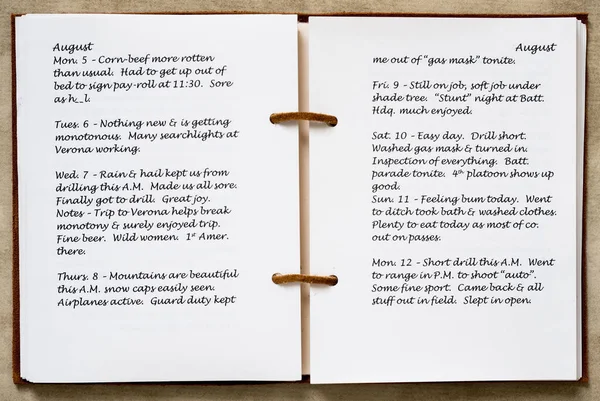 August
Mon. 5 - Corn-beef more rotten
than usual. Had to get up out of
bed to sign pay-roll at 11:30. Sore
as h__l.
Tues. 6 - Nothing new & is getting
monotonous. Many searchlights at
Verona working.
Wed. 7 - Rain & hail kept us from
drilling this A.M. Made us all sore.
Finally got to drill. Great joy.
Notes - Trip to Verona helps break
monotony & surely enjoyed trip.
Fine beer. Wild women. 1st Amer.
there.
Thurs. 8 - Mountains are beautiful
this A.M. snow caps easily seen.
Airplanes active. Guard duty kept
August
me out of "gas mask" tonite.
Fri. 9 - Still on job, soft job under
shade tree. "Stunt" night at Batt.
Hdq. much enjoyed.
Sat. 10 - Easy day. Drill short.
Washed gas mask & turned in.
Inspection of everything. Batt.
parade tonite. 4th platoon shows up
good.
Sun. 11 - Feeling bum today. Went
to ditch took bath & washed clothes.
Plenty to eat today as most of co.
out on passes.
Mon. 12 - Short drill this A.M. Went
to range in P.M. to shoot "auto".
Some fine sport. Came back & all
stuff out in field. Slept in open.